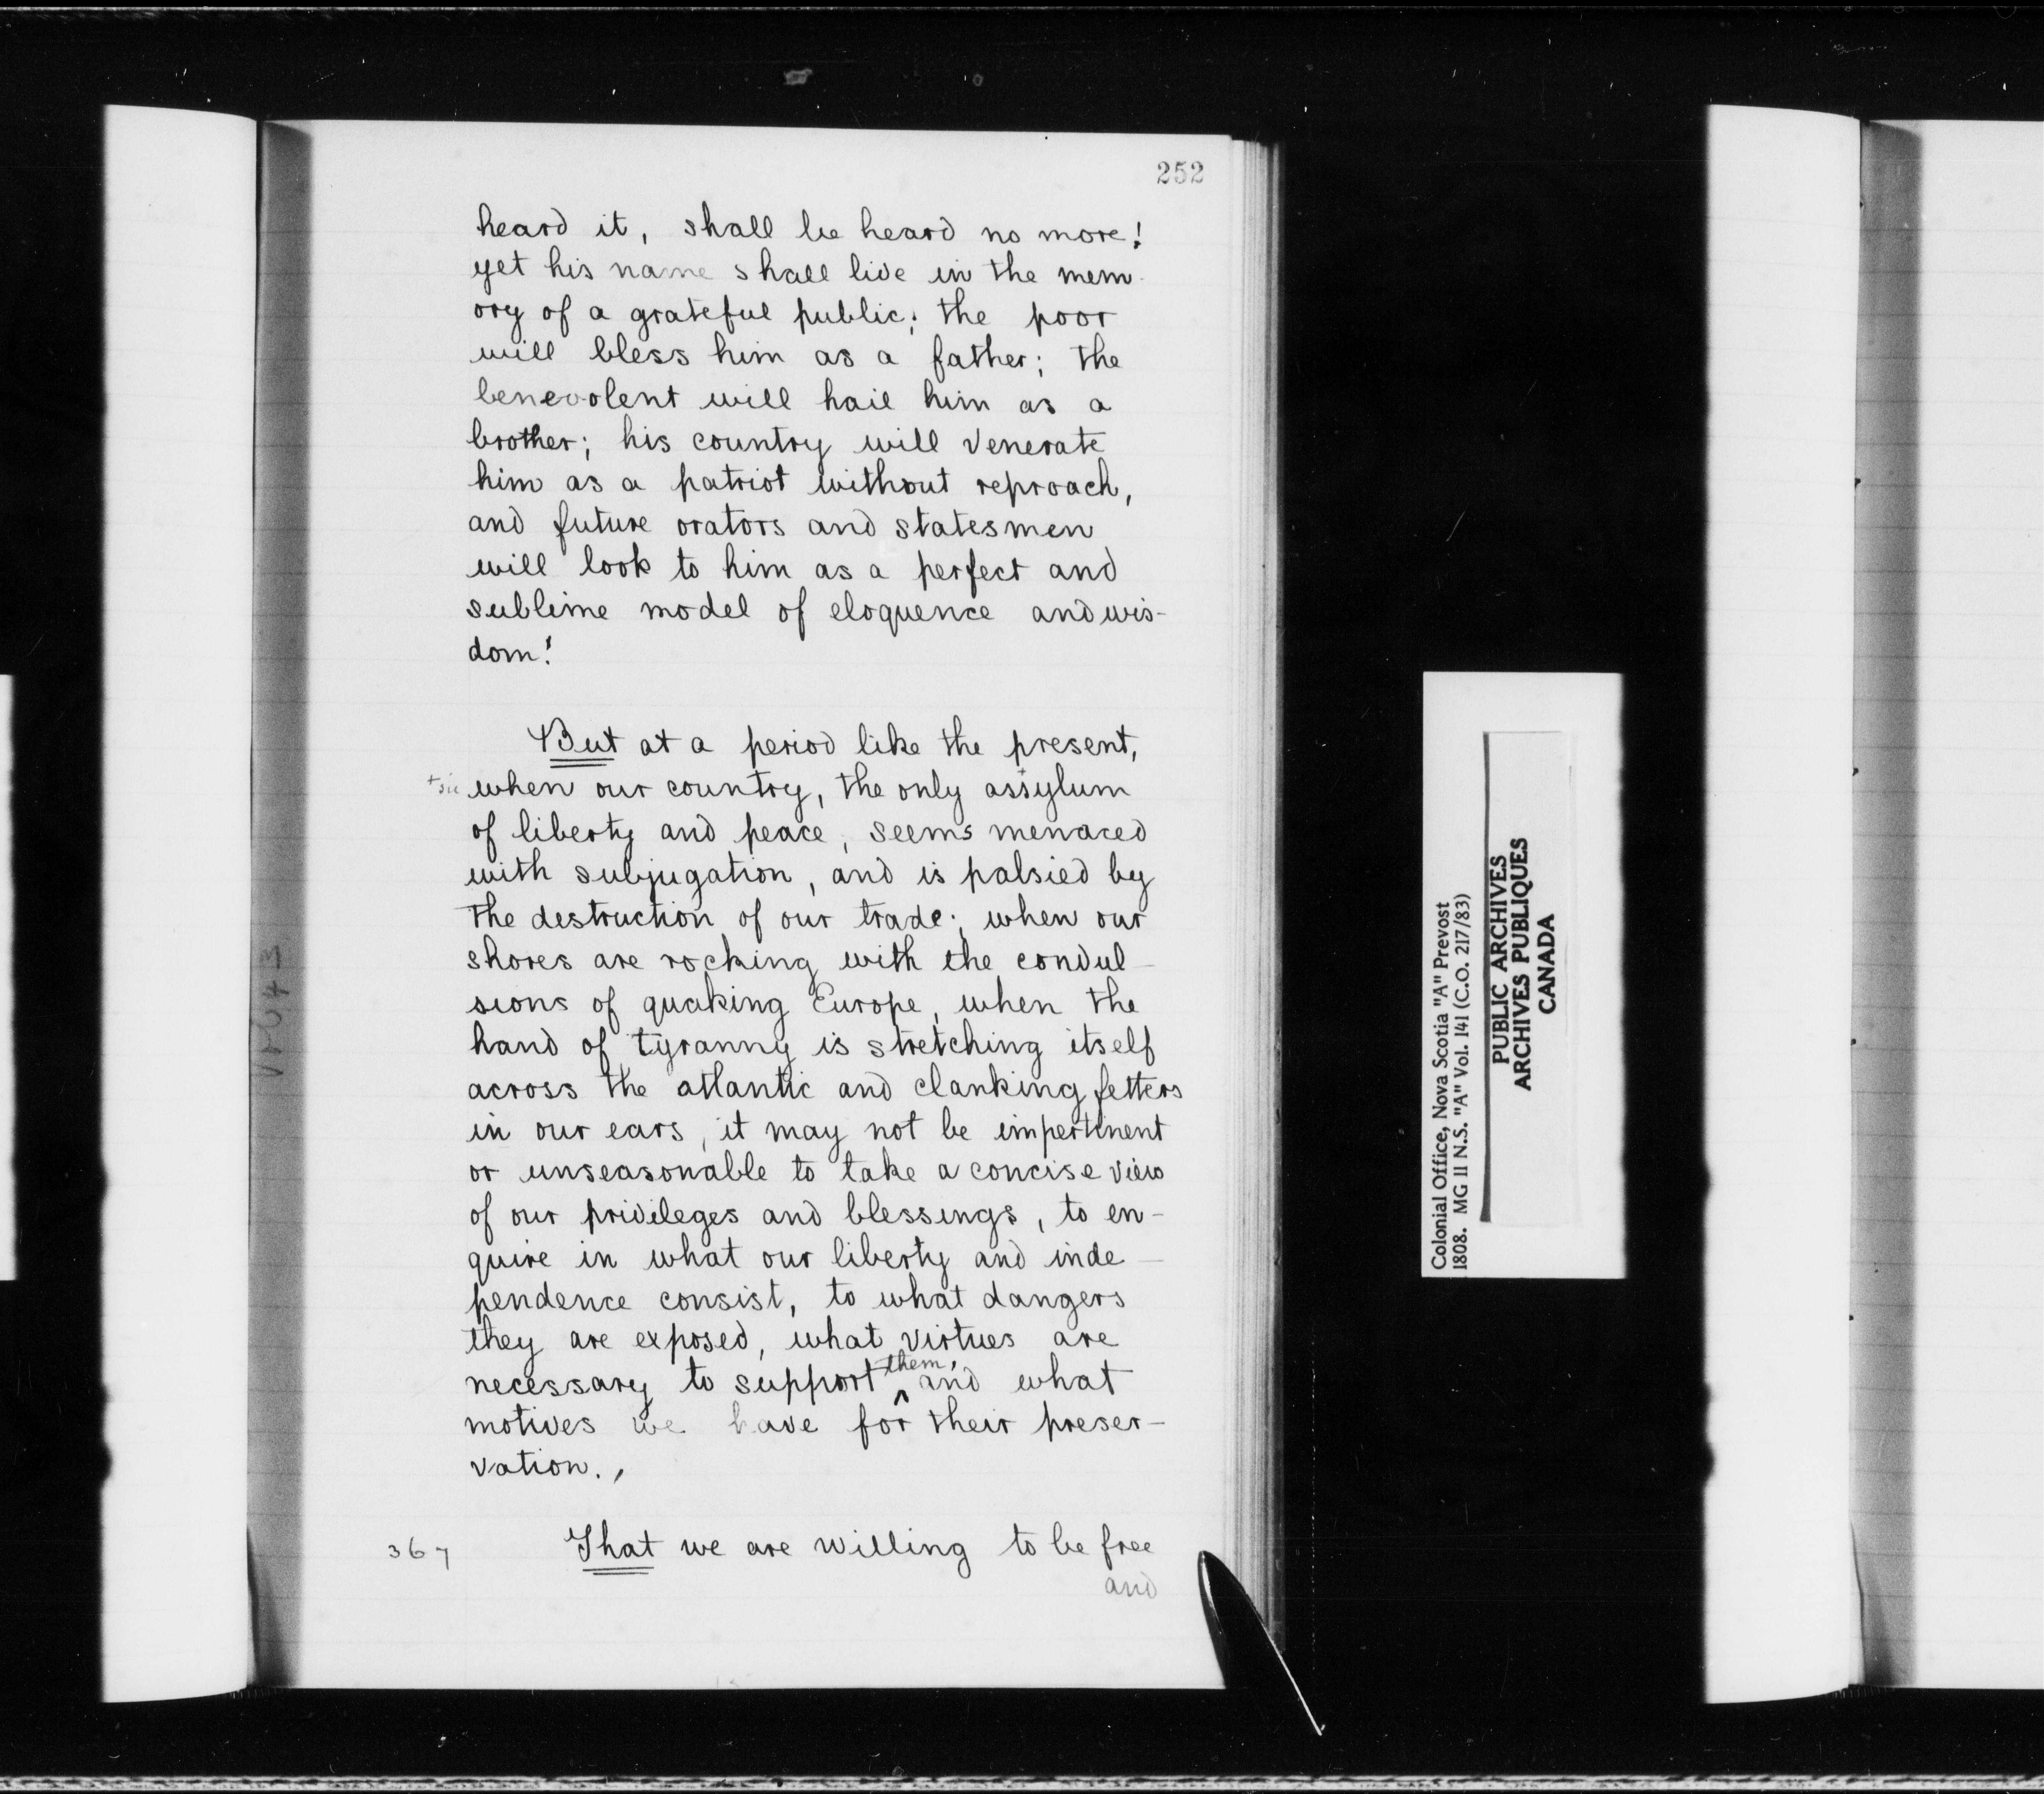 252
heard it, shall be heard no more!
yet his name shall live in the mem-
ory of a grateful public; the poor
will bless him as a father; the
benevolent will hail him as a
brother; his country will venerate
him as a patriot without reproach,
and future orators and statesmen
will look to him as a perfect and
sublime model of eloquence and wis-
dom!
But at a period like the present,
+sic when our country, the only assylum
of liberty and peace, seems menaced
with subjugation, and is palsied by
the destruction of our trade; when our
shores are rocking with the convul-
sions of quaking Europe, when the
hand of tyranny is stretching itself
across the atlantic and clanking fetters
in our ears, it may not be impertinent
or unseasonable to take a concise view
of our privileges and blessings, to en-
quire in what our liberty and inde-
pendence consist, to what dangers
they are exposed, what virtues are
necessary to support them, and what
motives we have for their preser-
vation.,
367 That we are willing to be free
and
Colonial Office, Nova Scotia "A" Prevost
1808. MG 11 N.S. "A" Vol. 141 (C.O. 217/83)
PUBLIC ARCHIVES
ARCHIVES PUBLIQUES
CANADA